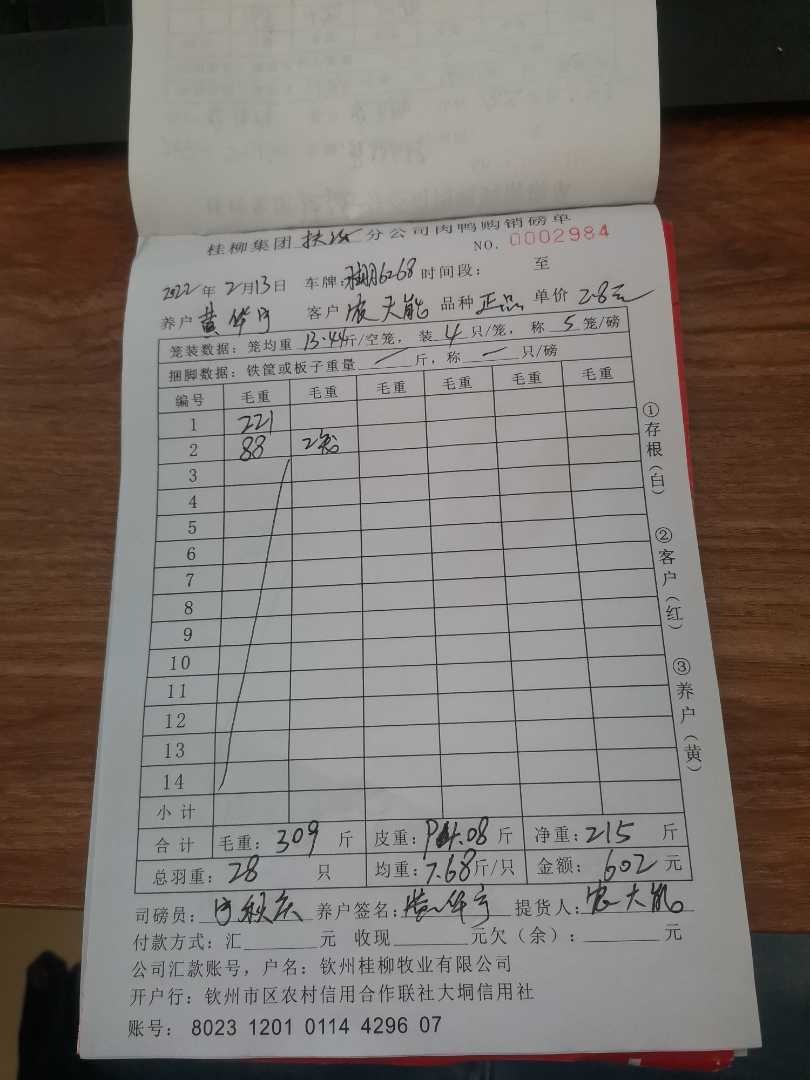 桂柳集团 扶绥 分公司肉鸭购销磅单
NO. 0002984
2022年2月13日 车牌: 6268 时间段: 至
养户 黄华宇 客户 农天能 品种 正品 单价 2.8元
笼装数据: 笼均重 13.44斤/空笼, 装 4 只/笼, 称 5 笼/磅
捆脚数据: 铁筐或板子重量 — 斤, 称 — 只/磅
编号 毛重 毛重 毛重 毛重 毛重 毛重
1 221
2 88 2笼
3
4
5
6
7
8
9
10
11
12
13
14
小计
合计 毛重: 309 斤 皮重: 94.08 斤 净重: 215 斤
总羽重: 28 只 均重: 7.68斤/只 金额: 602 元
司磅员: 养户签名: 黄华宇 提货人: 农天能
付款方式: 汇 元 收现 元欠(余): 元
公司汇款账号, 户名: 钦州桂柳牧业有限公司
开户行: 钦州市区农村信用合作联社大垌信用社
账号: 8023 1201 0114 4296 07
①存根(白)
②客户(红)
③养户(黄)